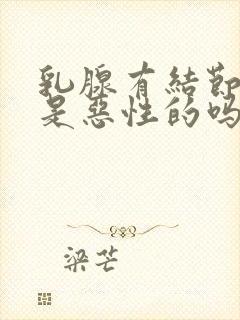 乳腺有結節
是惡性的吗
梁芒